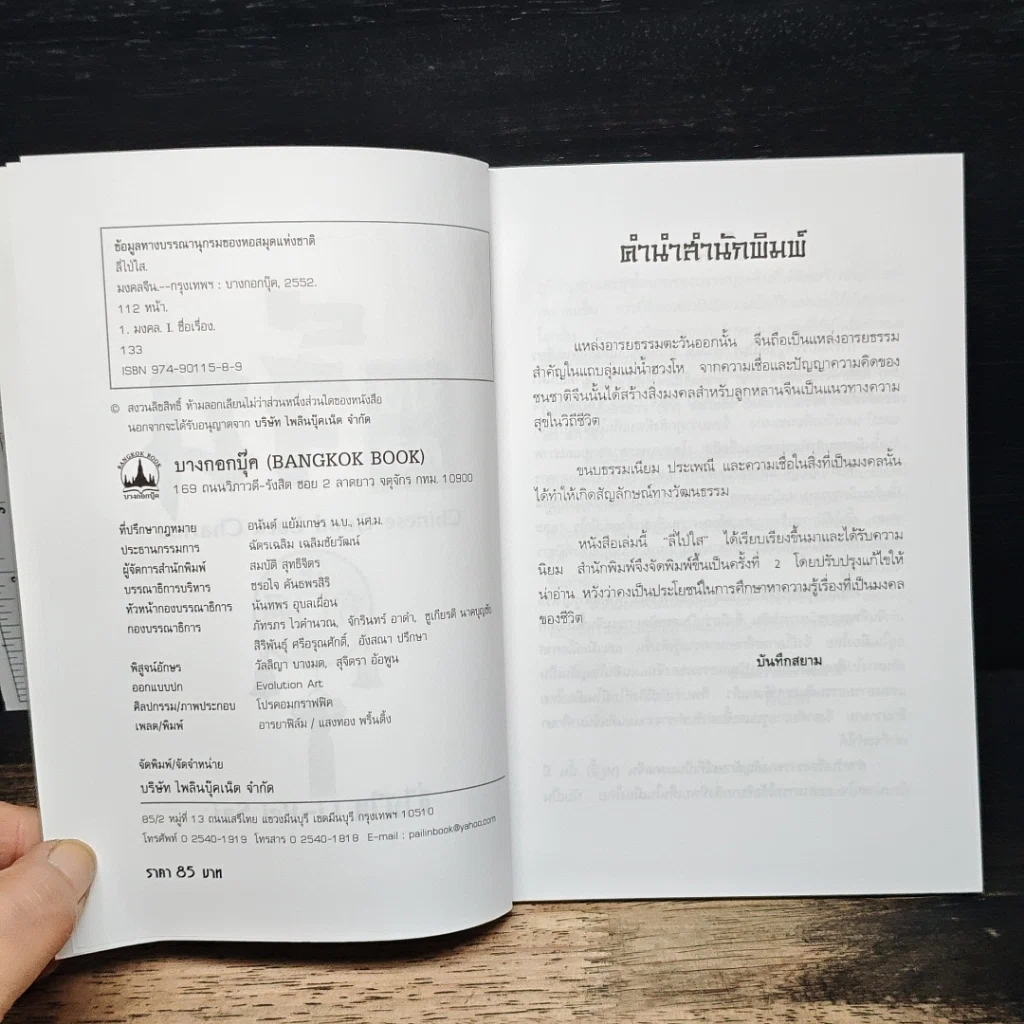 ข้อมูลทางบรรณานุกรมของหอสมุดแห่งชาติ
ลี่ไป่ไส.
มงคลจีน.--กรุงเทพฯ : บางกอกบุ๊ค, 2552.
112 หน้า.
1. มงคล. I. ชื่อเรื่อง.
133
ISBN 974-90115-8-9
© สงวนลิขสิทธิ์ ห้ามลอกเลียนไม่ว่าส่วนหนึ่งส่วนใดของหนังสือ
นอกจากจะได้รับอนุญาตจาก บริษัท ไพลินบุ๊คเน็ต จำกัด
BANGKOK BOOK
บางกอกบุ๊ค
บางกอกบุ๊ค (BANGKOK BOOK)
169 ถนนวิภาวดี-รังสิต ซอย 2 ลาดยาว จตุจักร กทม. 10900
ที่ปรึกษากฎหมาย อนันต์ แย้มเกษร น.บ., นศ.ม.
ประธานกรรมการ ฉัตรเฉลิม เฉลิมชัยวัฒน์
ผู้จัดการสำนักพิมพ์ สมบัติ สุทธิจิตร
บรรณาธิการบริหาร ชรอใจ คันธพรสิริ
หัวหน้ากองบรรณาธิการ นันทพร อุบลเผื่อน
กองบรรณาธิการ ภัทรภร ไวคำนวณ, จักรินทร์ อาดำ, ชูเกียรติ นาคบุญชัย
สิริพันธุ์ ศรีอรุณศักดิ์, อังสณา ปรึกษา
พิสูจน์อักษร วัลลิญา บางมด, สุจิตรา อ้อพูน
ออกแบบปก Evolution Art
ศิลปกรรม/ภาพประกอบ โปรคอมกราฟฟิค
เพลต/พิมพ์ อารยาฟิล์ม / แสงทอง พริ้นติ้ง
จัดพิมพ์/จัดจำหน่าย
บริษัท ไพลินบุ๊คเน็ต จำกัด
85/2 หมู่ที่ 13 ถนนเสรีไทย แขวงมีนบุรี เขตมีนบุรี กรุงเทพฯ 10510
โทรศัพท์ 0 2540-1919 โทรสาร 0 2540-1818 E-mail : pailinbook@yahoo.com
ราคา 85 บาท
คำนำสำนักพิมพ์
แหล่งอารยธรรมตะวันออกนั้น จีนถือเป็นแหล่งอารยธรรม
สำคัญในแถบลุ่มแม่น้ำฮวงโห จากความเชื่อและปัญญาความคิดของ
ชนชาติจีนนั้นได้สร้างสิ่งมงคลสำหรับลูกหลานจีนเป็นแนวทางความ
สุขในวิถีชีวิต
ขนบธรรมเนียม ประเพณี และความเชื่อในสิ่งที่เป็นมงคลนั้น
ได้ทำให้เกิดสัญลักษณ์ทางวัฒนธรรม
หนังสือเล่มนี้ "ลี่ไป่ไส" ได้เรียบเรียงขึ้นมาและได้รับความ
นิยม สำนักพิมพ์จึงจัดพิมพ์ขึ้นเป็นครั้งที่ 2 โดยปรับปรุงแก้ไขให้
น่าอ่าน หวังว่าคงเป็นประโยชน์ในการศึกษาหาความรู้เรื่องที่เป็นมงคล
ของชีวิต
บันทึกสยาม